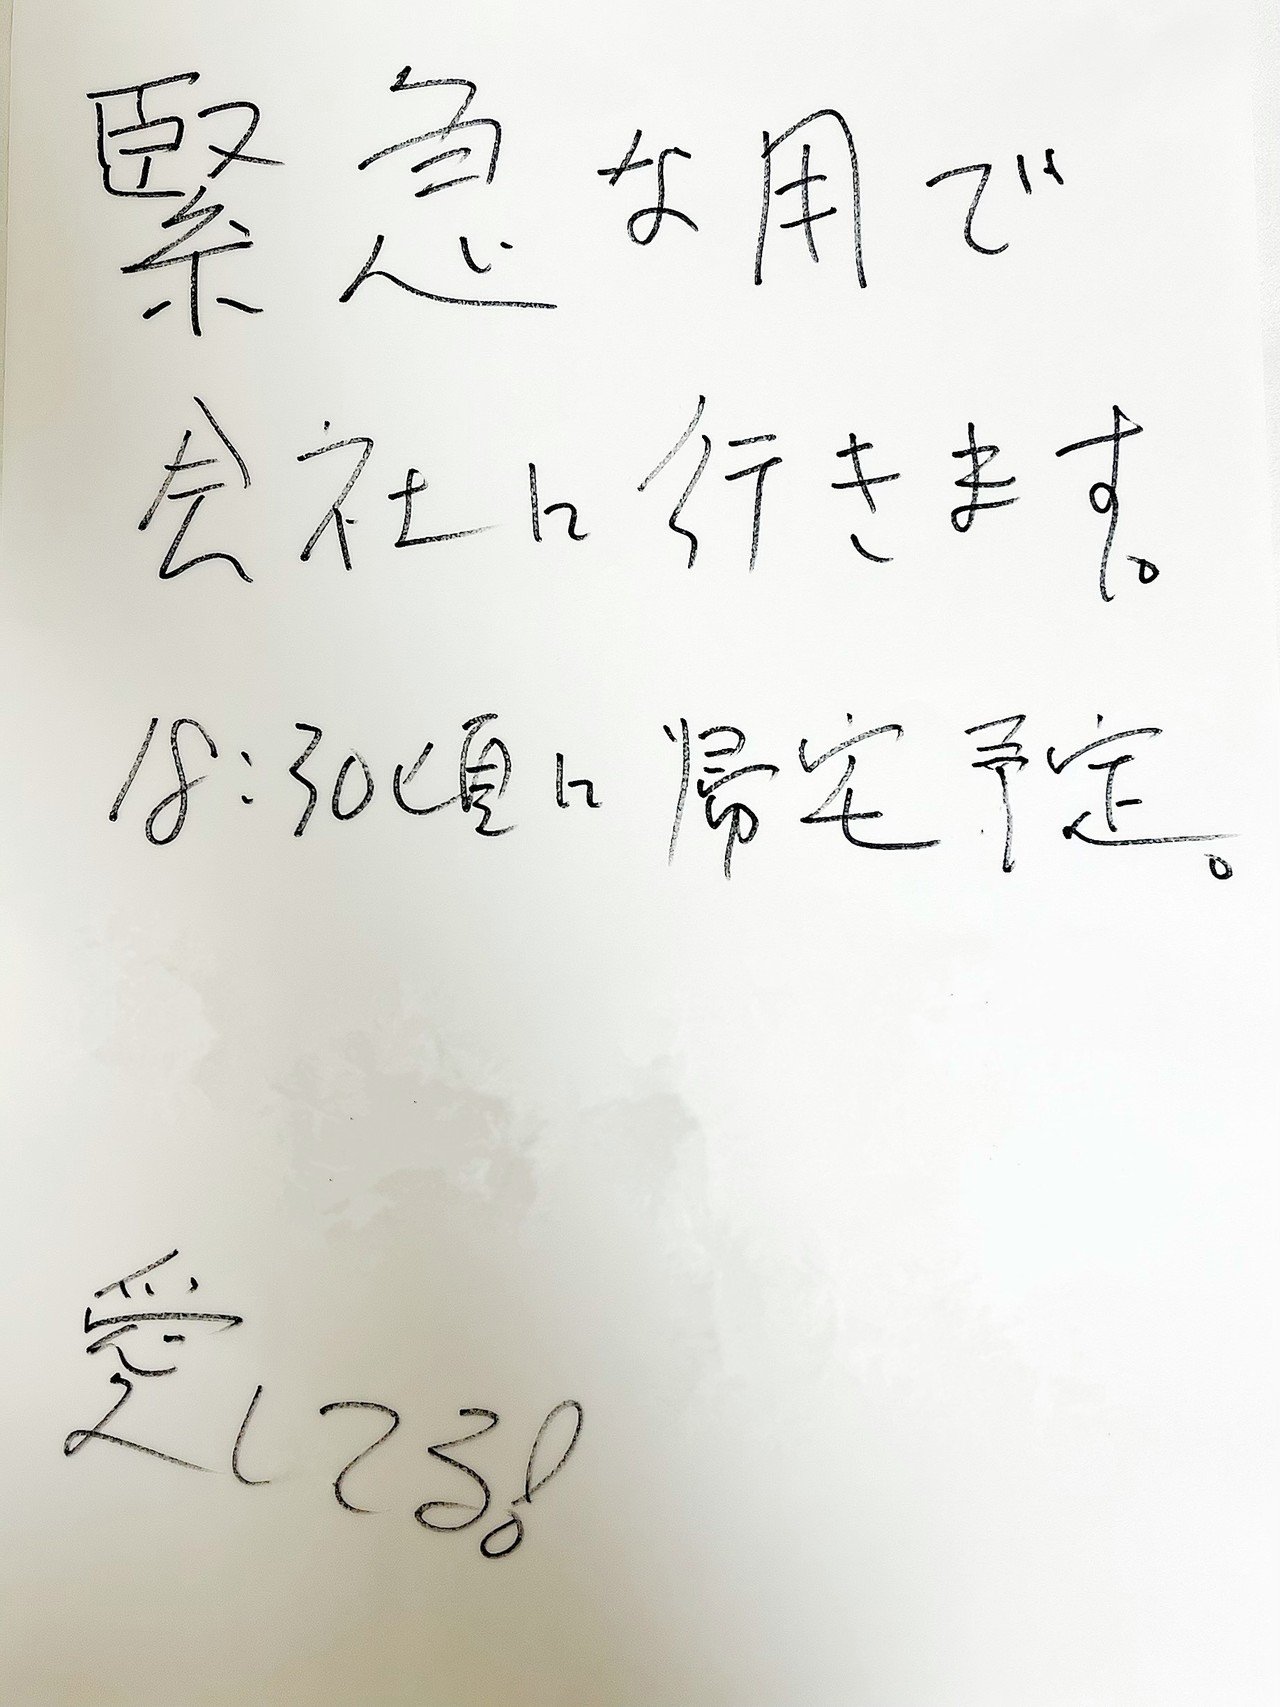 緊急な用で
会社に行きます。
18:30頃に帰宅予定。
愛してる!